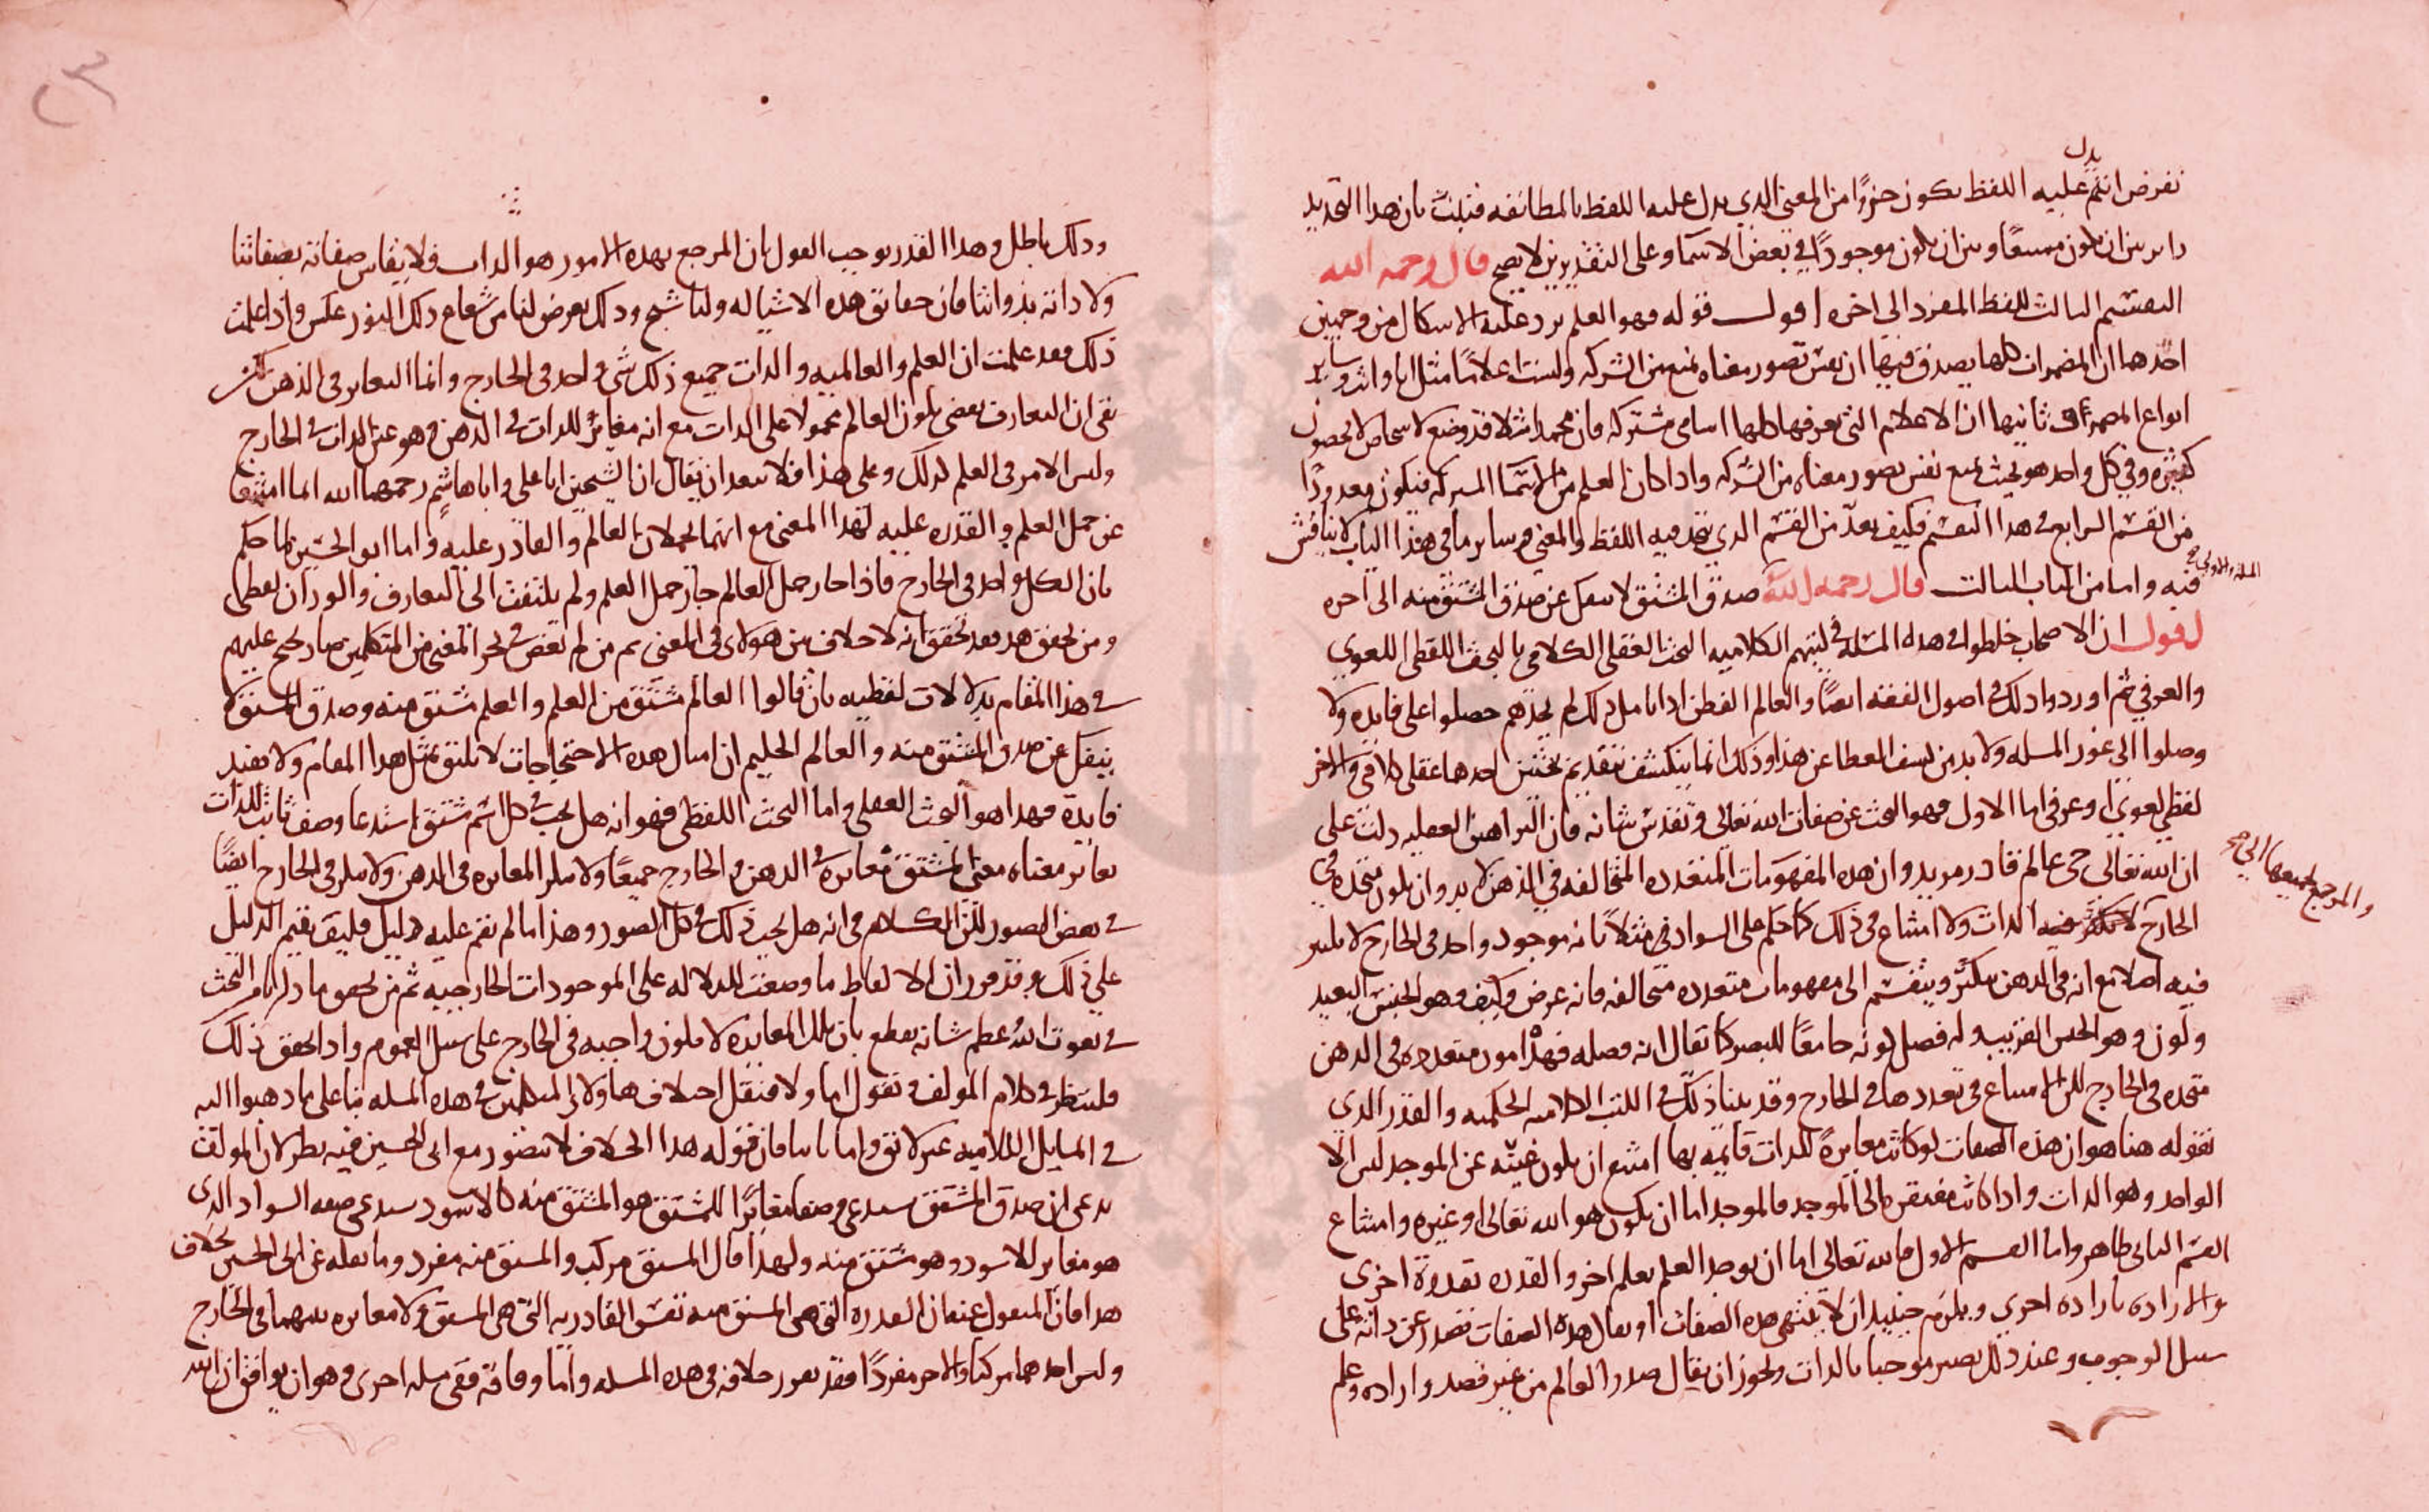 نفرض انتم عليه اللفظ يكون جزوًا من المعنى الذي يدل عليه اللفظ بالمطابقه فثبت بان هذا التحديد
داير بين ان يكون ممتنعًا وبين ان يكون موجودًا في بعض الاسما وعلى التقديرين لا يصح قال رحمه الله
التقسيم الثالث للفظ المفرد الى اخره اقول قوله فهو العلم يرد عليه الاشكال من وجهين
احدهما ان المضمرات كلها يصدق فيها ان نفس تصور معناه يمنع من الشركه وليست اعلامًا مثل انا وانت وساير
انواع المضمرات ثانيها ان الاعلام التي نعرفها كلها اسامى مشتركه فان محمدا مثلا قد وضع لاشخاص لا يحصون
كثيره وفي كل واحد هو بحيث يمنع نفس تصور معناه من الشركه واذا كان العلم من الاسما المشتركه فيكون معدودًا
من القسم الرابع في هذا التقسيم فكيف يعدّ من القسم الذي يتحد فيه اللفظ والمعنى وساير ما في هذا الباب لا يناقش
فيه واما من الباب الثالث قال رحمه الله صدق المشتق لا ينفك عن صدق المشتق منه الى اخره
اقول ان الاصحاب خلطوا في هذه المسله في كتبهم الكلاميه البحث العقلي الكلامي بالبحث اللفظي اللغوي
والعرفي ثم اوردوا ذلك في اصول الفقه ايضًا والعالم الفطن اذا تامل ذلك لم يجدهم حصلوا على فايده ولا
وصلوا الى غور المسله ولا بد من كشف الغطا عن هذا وذلك انما ينكشف بتقديم بحثين احدهما عقلي كلامي والاخر
لفظي لغوي او عرفي اما الاول فهو البحث عن صفات الله تعالى وتقدس شانه فان البراهين العقليه دلت على
ان الله تعالى حي عالم قادر مريد وان هذه المفهومات المتعدده المتخالفه في الذهن لا بد وان يكون متحده في
الخارج لا تكثر فيه الذات ولا امتناع في ذلك كما حكم على السواد في مثلاً بانه موجود واحد في الخارج لا تكثر
فيه اصلا مع انه في الذهن متكثر وينقسم الى مفهومات متعدده متخالفه فانه عرض وكيف وهو الجنس البعيد
ولون وهو الجنس القريب وله فصل كونه جامعًا للبصر كما يقال انه فصله فهذه امور متعدده في الذهن
متحده في الخارج للامتناع في تعددها في الخارج وقد بينا ذلك في الكتب الكلاميه الحكميه والقدر الذي
نقوله هنا هو ان هذه الصفات لو كانت مغايرةً للذات قايمه بها امتنع ان يكون غنيّه عن الموجد ليس الا
الواحد وهو الذات واذا كانت مفتقره الى الموجد فالموجد اما ان يكون هو الله تعالى او غيره وامتناع
القسم الثاني ظاهر واما القسم الاول فالله تعالى اما ان يوجد العلم بعلم اخر والقدره بقدرة اخرى
والاراده باراده اخرى ويلزم حينيذ ان لا ينتهي هذه الصفات او يقال هذه الصفات تصدر عن ذاته على
سبيل الوجوب وعند ذلك يصير موجبا بالذات ويجوز ان يقال صدر العالم من غير قصد واراده وعلم
وذلك باطل وهذا القدر يوجب القول بان المرجع بهذه الامور هو الذات فلا يقاس صفاته بصفاتنا
ولا ذاته بذواتنا فان حقايق هذه الاشيا له ولنا شبح وذلك يعرض لنا من شعاع ذلك النور عكس واذا علمت
ذلك فقد علمت ان العلم والعالميه والذات جميع ذلك شي واحد في الخارج وانما التغاير في الذهن لكن
بقى ان التعارف يقضي بكون العالم محمولا على الذات مع انه مغايرٌ للذات في الذهن وهو عين الذات في الخارج
وليس الامر في العلم كذلك وعلى هذا فلا يبعد ان يقال ان الشيخين ابا علي وابا هاشم رحمهما الله انما امتنعا
عن حمل العلم والقدره عليه لهذا المعنى مع انهما يحملان العالم والقادر عليه واما ابو الحسين لما حكم
بان الكل واحد في الخارج فاذا جاز حمل العالم جاز حمل العلم ولم يلتفت الى التعارف والوزان لفظي
ومن تحقق هذا فقد تحقق انه لا خلاف بين هولاى في المعنى ثم من لم يغص في بحر المعنى من المتكلمين صار يحتج عليهم
في هذا المقام بدلالات لفظيه بان قالوا العالم مشتق من العلم والعلم مشتق منه وصدق المشتق لا
ينفك عن صدق المشتق منه والعالم الحليم ان امثال هذه الاحتجاجات لا تليق بمثل هذا المقام ولا تفيد
فايدة فهذا هو البحث العقلي واما البحث اللفظي فهو انه هل يجب في كل اسم مشتق استدعا وصف ثابت للذات
يغاير معناه معنى المشتق مغايرة في الذهن والخارج جميعًا ولا ننكر المغايره في الذهن ولا ننكر في الخارج ايضًا
في بعض الصور لكن الكلام في انه هل يجب ذلك في كل الصور وهذا ما لم نقم عليه دليل فليق بقيم الدليل
على ذلك وقد قررنا ان الالفاظ ما وضعت للدلاله على الموجودات الخارجيه ثم من تحقق ما ذكرنا من البحث
في نعوت الله عظم شانه يقطع بان تلك المغايره لا يكون واجبه في الخارج على سبيل العموم واذا تحقق ذلك
فلننظر في كلام المولف فنقول اما اولا فنقل اختلاف هاولاى المتكلمين في هذه المسله بنا على ما ذهبوا اليه
في المسايل الكلاميه غير لايق واما ثانيا فان قوله هذا الخلاف لا يتصور مع ابى الحسين فيه نظر لان المولف
يدعى ان صدق المشتق يستدعى وصفا مغايرًا للمشتق هو المشتق منه كالاسود يستدعى صفه السواد الذي
هو مغاير للاسود وهو مشتق منه ولهذا قال المشتق مركب والمشتق منه مفرد وما نقله عن ابى الحسين بخلاف
هذا فان المنقول عنه ان القدره التي هي المشتق منه نفس القادريه التي هي المشتق ولا مغايره بينهما في الخارج
وليس احدهما مركبا والاخر مفردًا فقد تقرر خلافه في هذه المسله واما وفاقه ففي مسله اخرى وهو ان يوافق ان الله